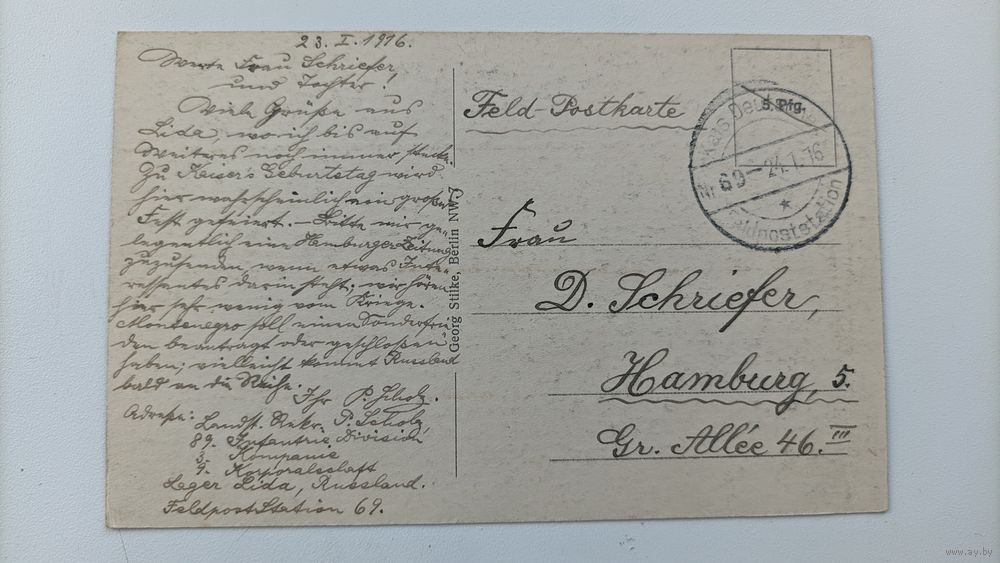 23. I. 1916.
Werte Frau Schriefer,
und Tochter!
Viele Grüße aus
Lida, wo ich bis auf
Weiteres noch immer stecke.
Zu Kaisers Geburtstag wird
hier wahrscheinlich ein großes
Fest gefeiert. – Bitte mir ge-
legentlich eine Hamburger Zeitung
zuzusenden, wenn etwas Inte-
ressantes darin steht; wir hören
hier sehr wenig vom Kriege.
Montenegro soll einen Sonderfrie-
den beantragt oder geschloßen
haben; vielleicht kommt Russland
bald an die Reihe.
Ihr P. Scholz.
Adresse: Landst. Rekr. P. Scholz,
89. Infantrie Division
3. Kompanie
9. Korporalschaft
Lager Lida, Russland.
Feldpoststation 69.
Georg Stilke, Berlin NW.7
Feld-Postkarte
5 Pfg.
Kais. Deutsche
Nr 69 – 24.1.16
Feldpoststation
Frau
D. Schriefer,
Hamburg, 5.
Gr. Allée 46. III
www.ay.by